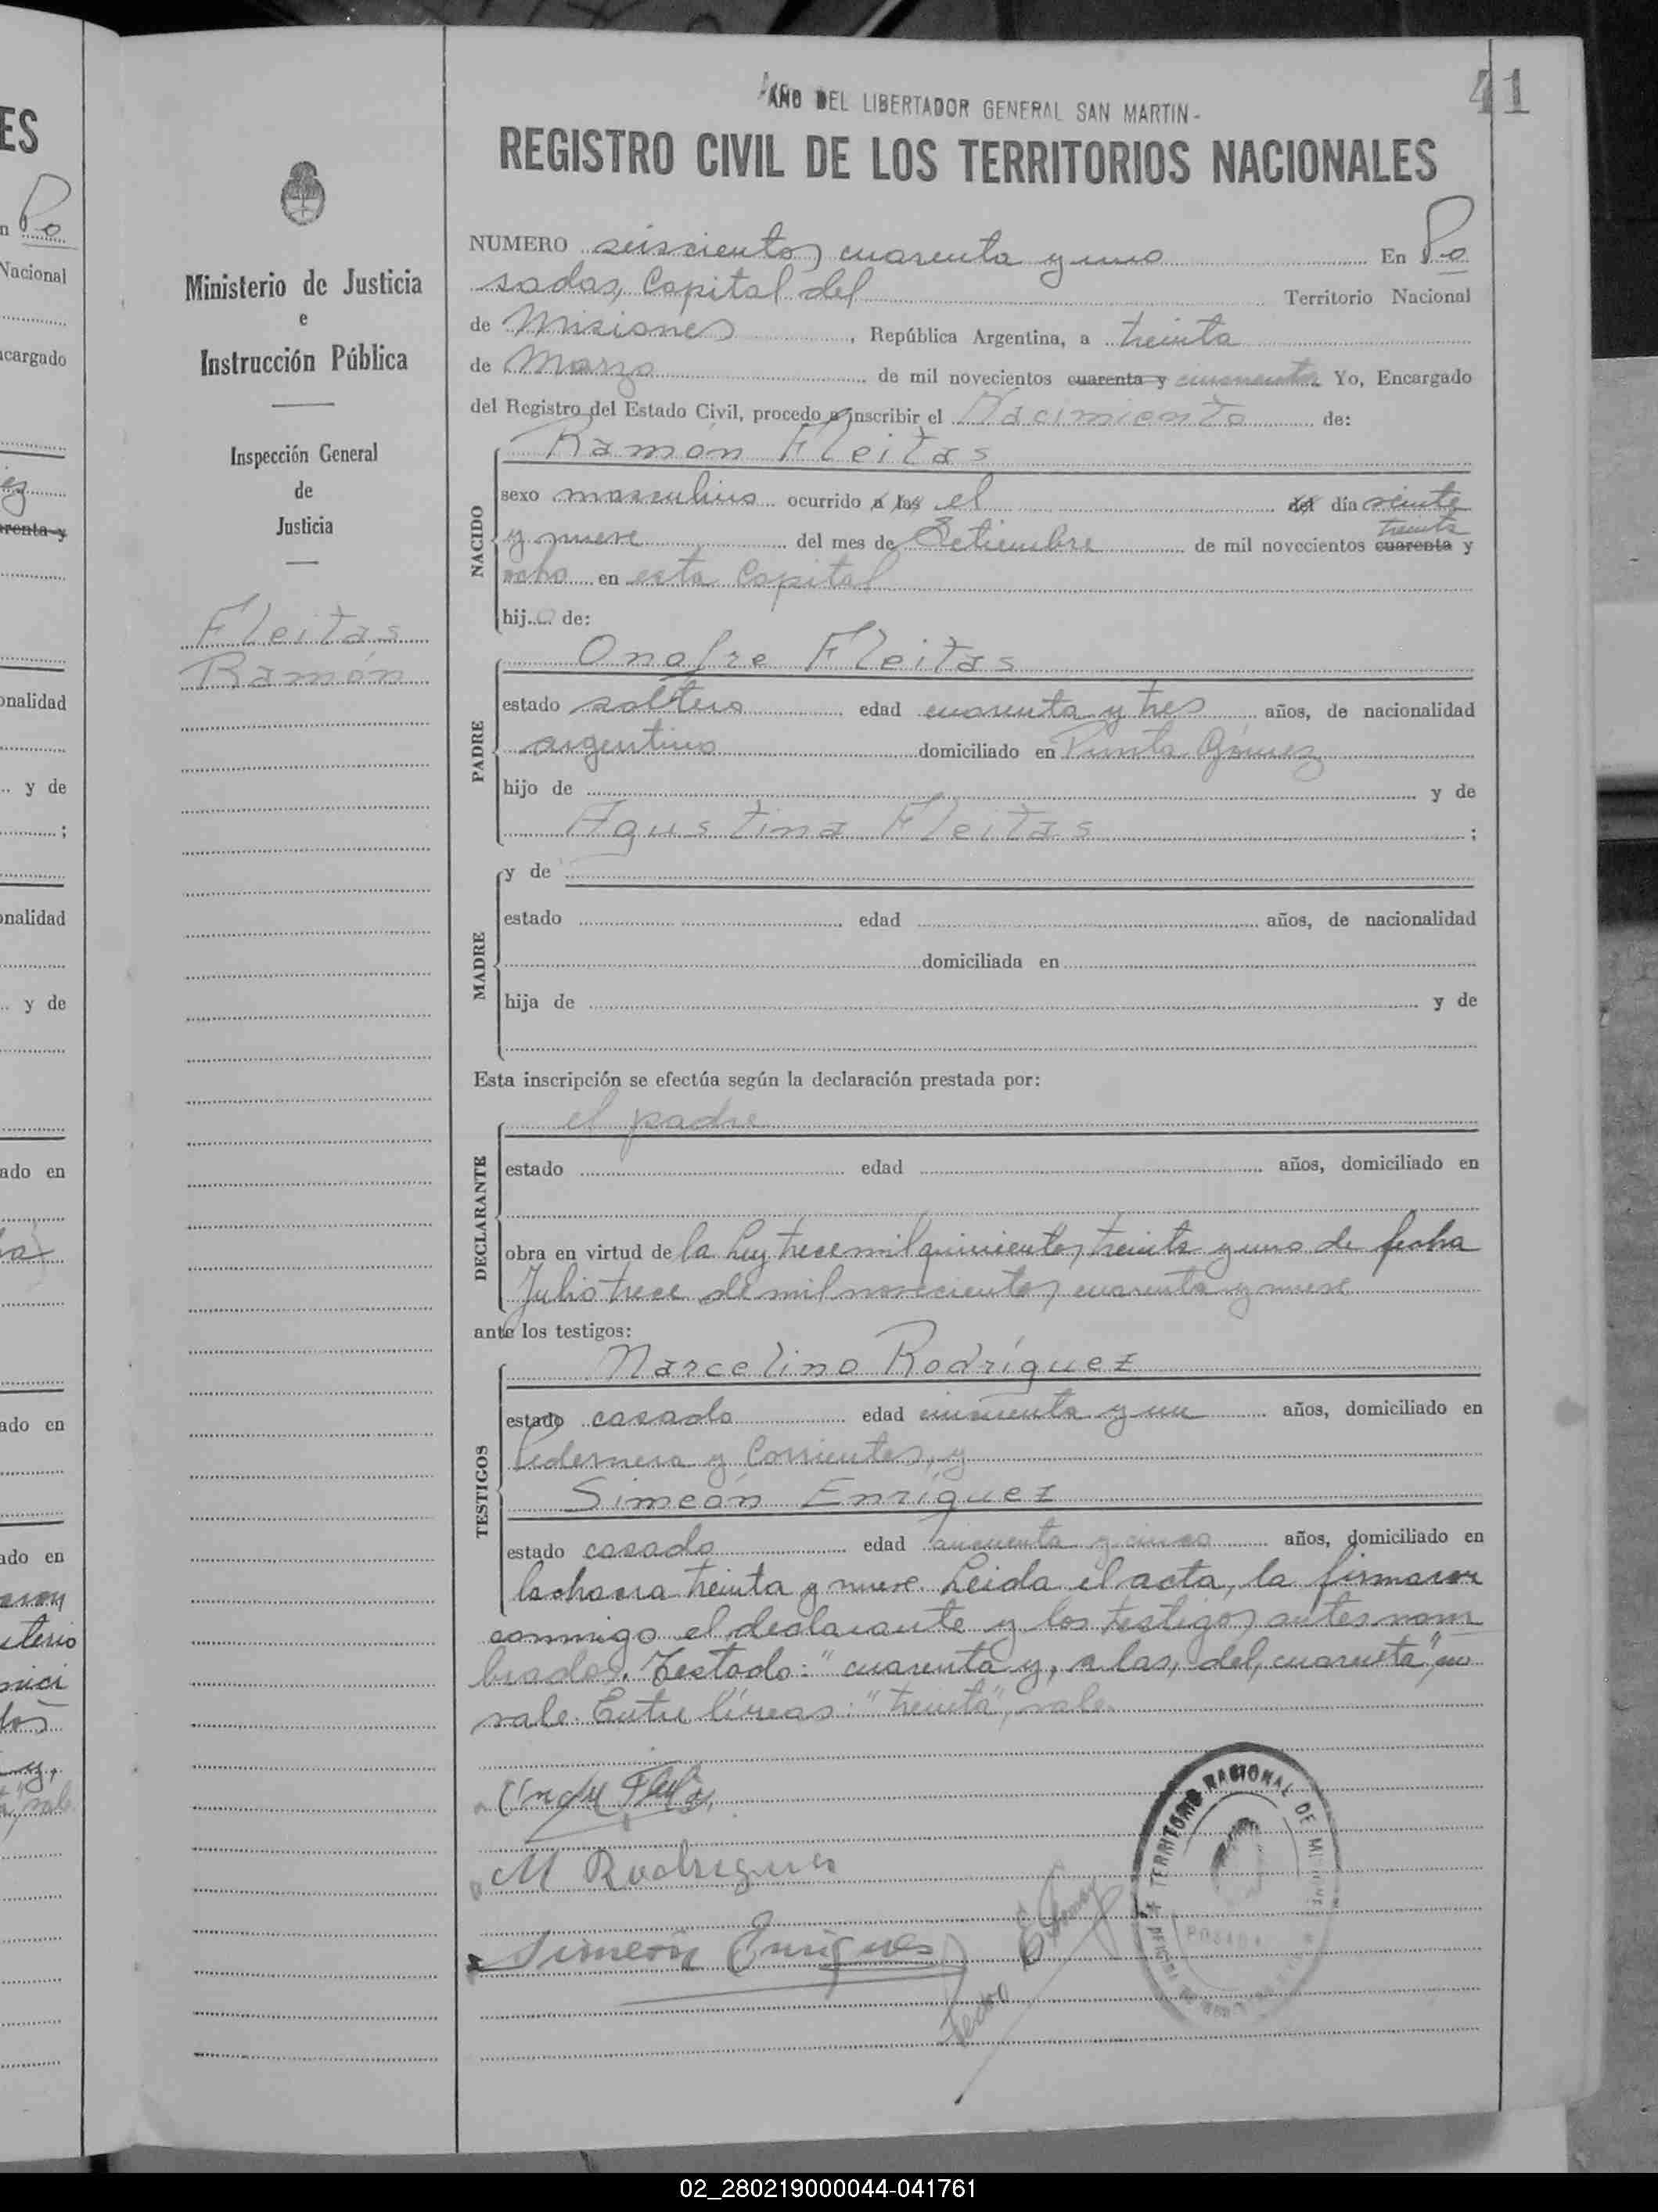 41
AÑO DEL LIBERTADOR GENERAL SAN MARTIN-
REGISTRO CIVIL DE LOS TERRITORIOS NACIONALES
Ministerio de Justicia
e
Instrucción Pública
Inspección General
de
Justicia
Fleitas
Ramón
NUMERO seiscientos cuarenta y uno En Po
sadas, Capital del Territorio Nacional
de Misiones, República Argentina, a treinta
de Marzo de mil novecientos cuarenta y cincuenta Yo, Encargado
del Registro del Estado Civil, procedo a inscribir el Nacimiento de:
Ramón Fleitas
NACIDO
sexo masculino ocurrido a las el del día veinte
treinta
y nueve del mes de Setiembre de mil novecientos cuarenta y
ocho en esta Capital
hijo de:
PADRE
Onofre Fleitas
estado soltero edad cuarenta y tres años, de nacionalidad
argentino domiciliado en Punta Gómez
hijo de y de
Agustina Fleitas ;
MADRE
y de
estado edad años, de nacionalidad
domiciliada en
hija de y de
Esta inscripción se efectúa según la declaración prestada por:
DECLARANTE
el padre
estado edad años, domiciliado en
obra en virtud de la Ley trece mil quinientos treinta y uno de fecha
Julio trece de mil novecientos cuarenta y nueve
ante los testigos:
TESTIGOS
Marcelino Rodríguez
estado casado edad cincuenta y un años, domiciliado en
Pedernera y Corrientes, y
Simeón Enríquez
estado casado edad cincuenta y cinco años, domiciliado en
la chacra treinta y nueve. Leida el acta, la firmaron
conmigo el declarante y los testigos antes nom
brados. Testado: "cuarenta y, a las, del, cuarenta", no
vale. Entre líneas: "treinta", vale.
M Rodrigues
Simeón Enriques
TERRITORIO NACIONAL DE MISIONES
POSADAS
ES
n Po
Nacional
ncargado
ez
arenta y
onalidad
.. y de
;
onalidad
.. y de
ado en
ado en
ado en
02_280219000044-041761